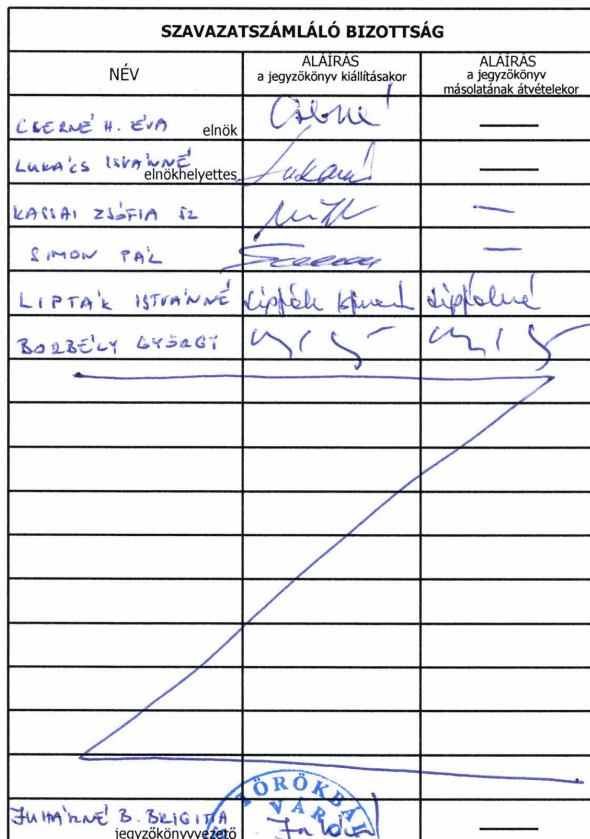 SZAVAZATSZÁMLÁLÓ BIZOTTSÁG
NÉV
ALÁÍRÁS
a jegyzőkönyv kiállításakor
ALÁÍRÁS
a jegyzőkönyv
másolatának átvételekor
CSERNÉ H. ÉVA elnök Cserné —
LUKÁCS ISTVÁNNÉ elnökhelyettes Lukácsné —
KASSAI ZSÓFIA —
SIMON PÁL —
LIPTÁK ISTVÁNNÉ Lipták Liptákné
BORBÉLY GYÖRGY
JUHÁRNÉ B. BRIGITTA
jegyzőkönyvvezető —
TÖRÖKBÁL
VÁRO